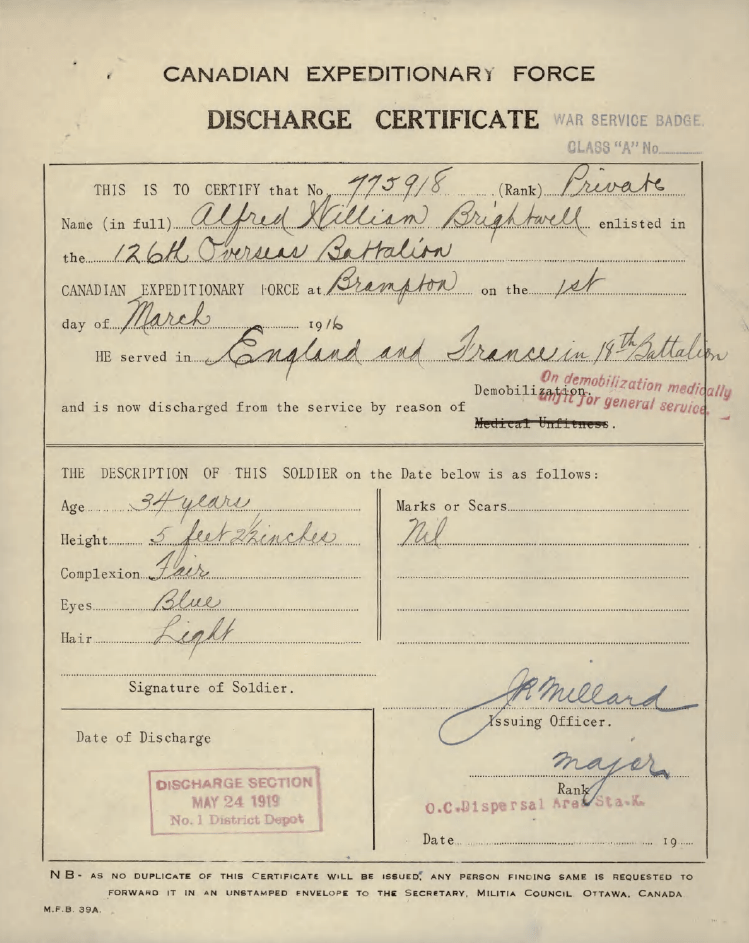 CANADIAN EXPEDITIONARY FORCE
DISCHARGE CERTIFICATE
WAR SERVICE BADGE.
CLASS "A" No
THIS IS TO CERTIFY that No. 775918 (Rank) Private
Name (in full) Alfred William Brightwell enlisted in
the 126th Overseas Battalion
CANADIAN EXPEDITIONARY FORCE at Brampton on the 1st
day of March 1916
HE served in England and France in 19th Battalion
On demobilization medically
Demobilization.
unfit for general service.
and is now discharged from the service by reason of
Medical Unfitness.
THE DESCRIPTION OF THIS SOLDIER on the Date below is as follows:
Age 34 years
Height 5 feet 2½ inches
Complexion Fair
Eyes Blue
Hair Light
Marks or Scars
Nil
Signature of Soldier.
JR Millard
Issuing Officer.
Major
Rank
O.C. Dispersal Area Sta. K.
Date 19
Date of Discharge
DISCHARGE SECTION
MAY 24 1919
No. 1 District Depot
NB- AS NO DUPLICATE OF THIS CERTIFICATE WILL BE ISSUED, ANY PERSON FINDING SAME IS REQUESTED TO
FORWARD IT IN AN UNSTAMPED ENVELOPE TO THE SECRETARY, MILITIA COUNCIL OTTAWA, CANADA
M.F.B. 39A.